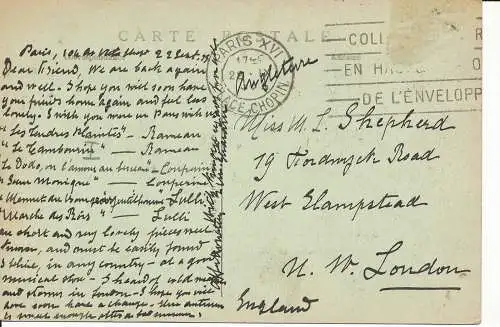 CARTE POSTALE
PARIS XVI
PLACE CHOPIN
COLL
EN HA
DE L'ENVELOPP
Paris, 22 Sept.
Dear Friend, We are back again
and well. I hope you will soon have
your friends home again and feel less
lonely. I wish you were in Paris with us
"Les Tendres Plaintes" - Rameau
"Le Tambourin" - Rameau
Le Dodo, ou l'amour au berceau" - Couperin
"Soeur Monique" - Couperin
"Menuet du Bourgeois gentilhomme" Lulli
"Marche des Rois" Lulli
are short and very lovely pieces well
known, and must be easily found
I think, in any country - at a good
musical store - I heard of cold
and storms in London - I hope you will
now soon have a change - This autumn
is
Angleterre
Miss M. L. Shepherd
19 Fordwych Road
West Hampstead
N. W. London
England